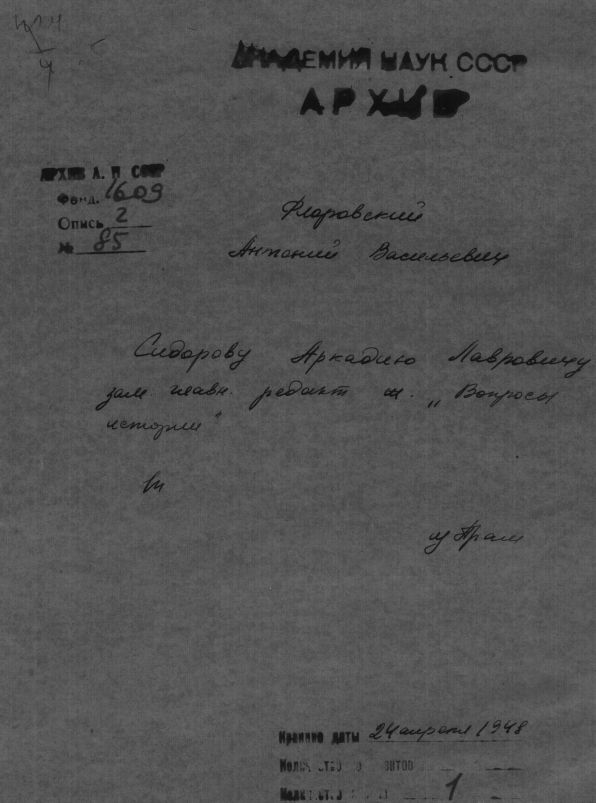 АКАДЕМИЯ НАУК СССР
АРХИВ
АРХИВ А. Н СССР
Фонд. 1609
Опись 2
№ 85
Флоровский
Антоний Васильевич
Сидорову Аркадию Лавровичу
зам главн. редакт ж. „Вопросы
истории"
Крайние даты 24 апреля 1948
1